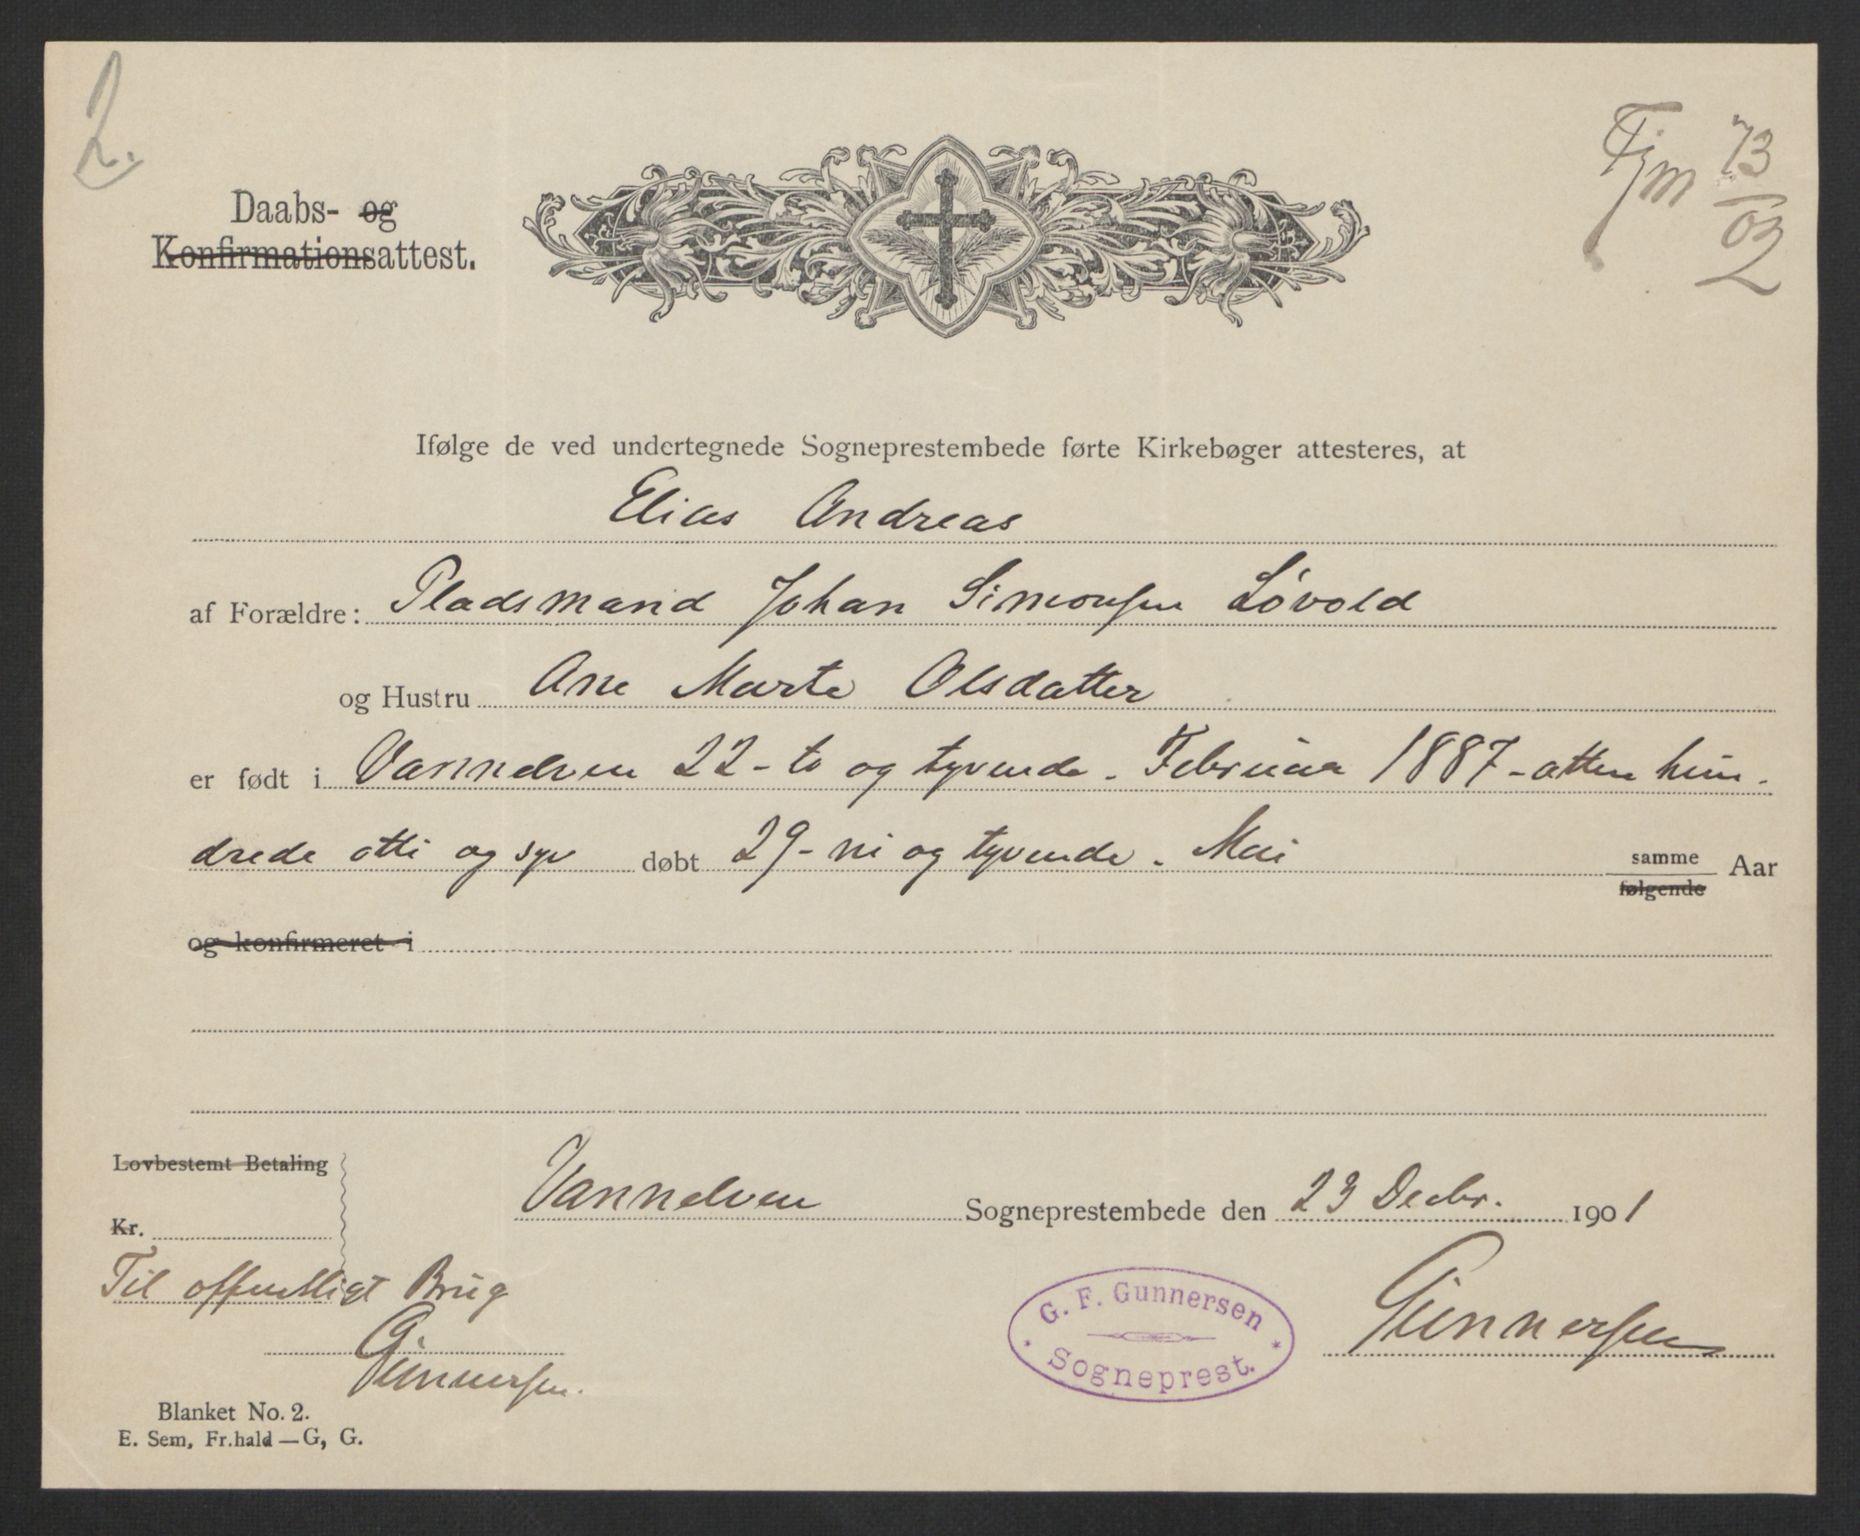 2.
Fjm 73/02
Daabs- og
Konfirmationsattest.
Ifølge de ved undertegnede Sogneprestembede førte Kirkebøger attesteres, at
Elias Andreas
af Forældre: Pladsmand Johan Simonsen Løvold
og Hustru Ane Marte Olsdatter
er født i Vannelven 22 - to og tyvende - Februar 1887 - atten hun-
drede otti og syv døbt 29 - ni og tyvende - Mai samme Aar
følgende
og konfirmeret i
Lovbestemt Betaling
Vannelven Sogneprestembede den 23 Decbr. 1901
Kr.
Til offentligt Brug
Gunnersen.
G. F. Gunnersen
Sogneprest.
Gunnersen
Blanket No. 2.
E. Sem, Fr.hald — G, G.